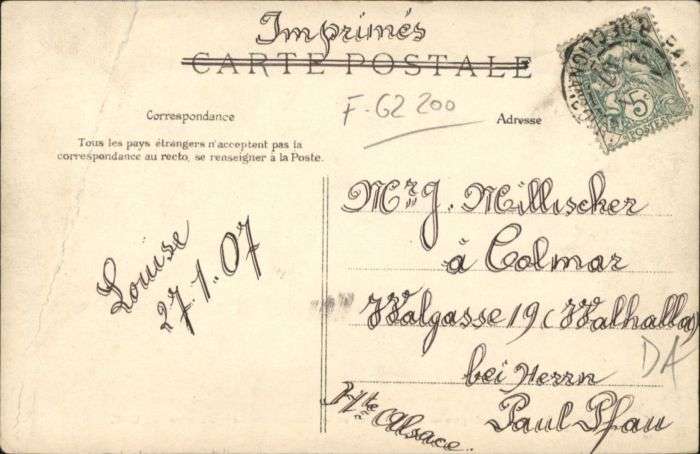 Imprimés
CARTE POSTALE
F-62 200
Correspondance
Adresse
Tous les pays étrangers n'acceptent pas la
correspondance au recto, se renseigner à la Poste.
5
POSTES
Louise
27.1.07
Mr J. Millischer
à Colmar
Walgasse 19 (Walhalla)
bei Herrn
Paul Pfau
Hte Alsace.
DA